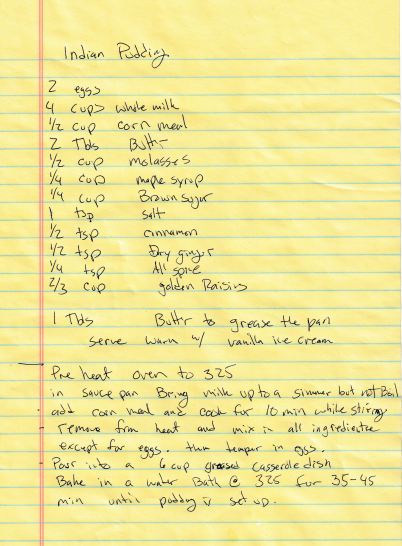 Indian Pudding
2 eggs
4 cups whole milk
1/2 cup corn meal
2 Tbls Buttr
1/2 cup molasses
1/4 cup maple syrup
1/4 cup Brown sugar
1 tsp salt
1/2 tsp cinnamon
1/2 tsp Dry ginger
1/4 tsp All spice
2/3 cup golden Raisins
1 Tbls Buttr to grease the pan
serve warm w/ vanilla ice cream
Pre heat oven to 325
in sauce pan Bring milk up to a simmer but not Boil
add corn meal and cook for 10 min while stiring
remove from heat and mix in all ingredientce
except for eggs. then temper in eggs.
Pour into a 6 cup greased casserole dish
Bake in a water Bath @ 325 for 35-45
min until pudding is set up.